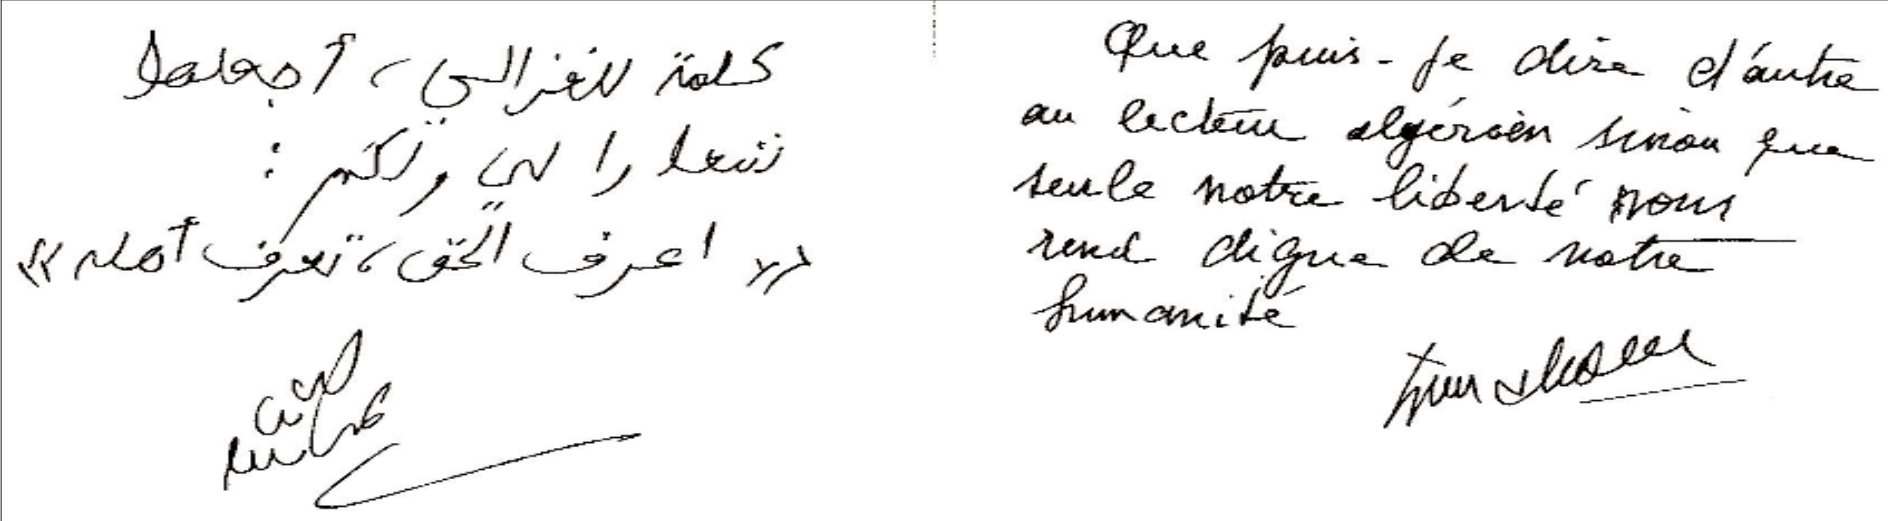 كلمة للغزالي، أجعلها
شعارا لي ولكم :
« اعرف الحق، تعرف أهله »
Que puis-je dire d'autre
au lecteur algérien sinon que
seule notre liberté nous
rend digne de notre
humanité